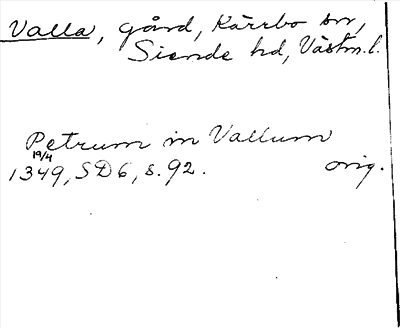 Valla, gård, Kärrbo sn,
Siende hd, Västm. l.
Petrum in Vallum
19/4
1349, SD 6, s. 92. orig.